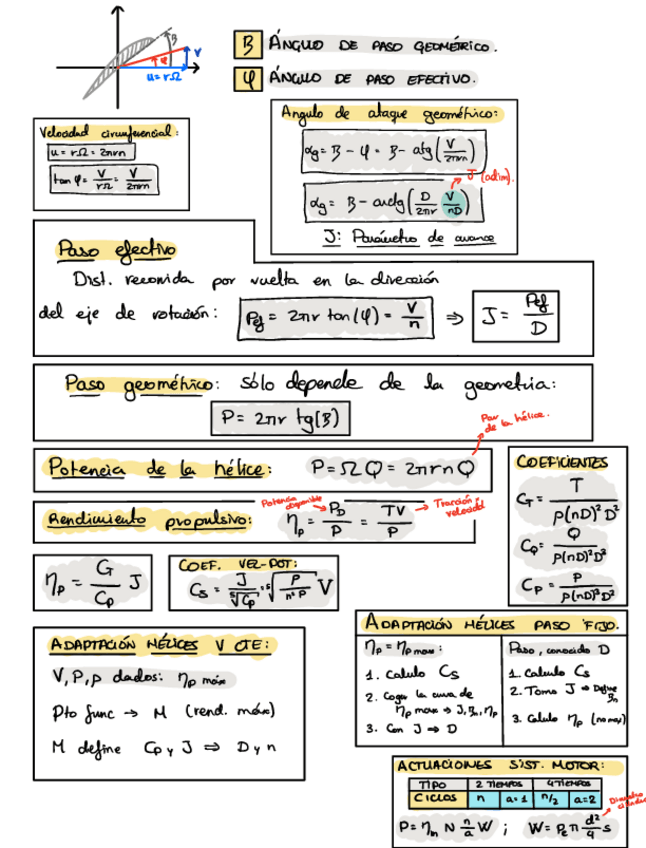 β
φ
V
u=rΩ
β ÁNGULO DE PASO GEOMÉTRICO.
φ ÁNGULO DE PASO EFECTIVO.
Velocidad circunferencial:
u = rΩ = 2πrn
tan φ = V/rΩ = V/2πrn
Angulo de ataque geométrico:
αg = β − φ = β − atg(V/2πrn)
J (adim).
αg = β − arctg(D/2πr V/nD)
J: Parámetro de avance
Paso efectivo
Dist. recorrida por vuelta en la dirección
del eje de rotación: Pef = 2πr tan(φ) = V/n ⇒ J = Pef/D
Paso geométrico: sólo depende de la geometría:
P = 2πr tg(β)
Par de la hélice.
Potencia de la hélice: P = ΩQ = 2πrnQ
Potencia disponible
Rendimiento propulsivo: ηp = PD/P = TV/P → Tracción y velocidad
COEFICIENTES
CT = T/ρ(nD)²D²
CQ = Q/ρ(nD)²D²
CP = P/ρ(nD)²D²
ηp = CT/CP J
COEF. VEL-POT:
Cs = J/⁵√CP = ⁵√ρ/n²P V
ADAPTACIÓN HÉLICES V CTE:
V, P, ρ dados: ηp máx
Pto func → M (rend. máx)
M define CP y J ⇒ D y n
ADAPTACIÓN HÉLICES PASO FIJO.
ηp = ηp max:
1. Calculo Cs
2. Coger la curva de
ηp max ⇒ J, βn, ηp
3. Con J ⇒ D
Paso, conocido D
1. Calculo Cs
2. Tomo J ⇒ Define βn
3. Calculo ηp (no max)
ACTUACIONES SIST. MOTOR:
TIPO 2 TIEMPOS 4 TIEMPOS
CICLOS n a=1 n/2 a=2
P = ηm N n/a W ; W = Pe π d²/4 s